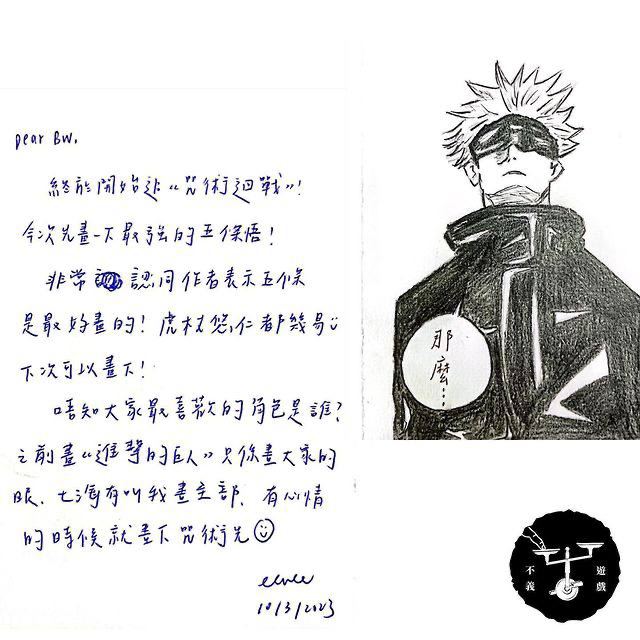 Dear BW,
終於開始追《咒術迴戰》!
今次先畫一下最強的五條悟!
非常認同作者表示五條
是最好畫的! 虎杖悠仁都幾易
下次可以畫下!
唔知大家最喜歡的角色是誰?
之前畫《進擊的巨人》只係畫大家的
眼, 七海有叫我畫全部, 有心情
的時候就畫下咒術先
10/3/2023
那麼...
不義
遊戲